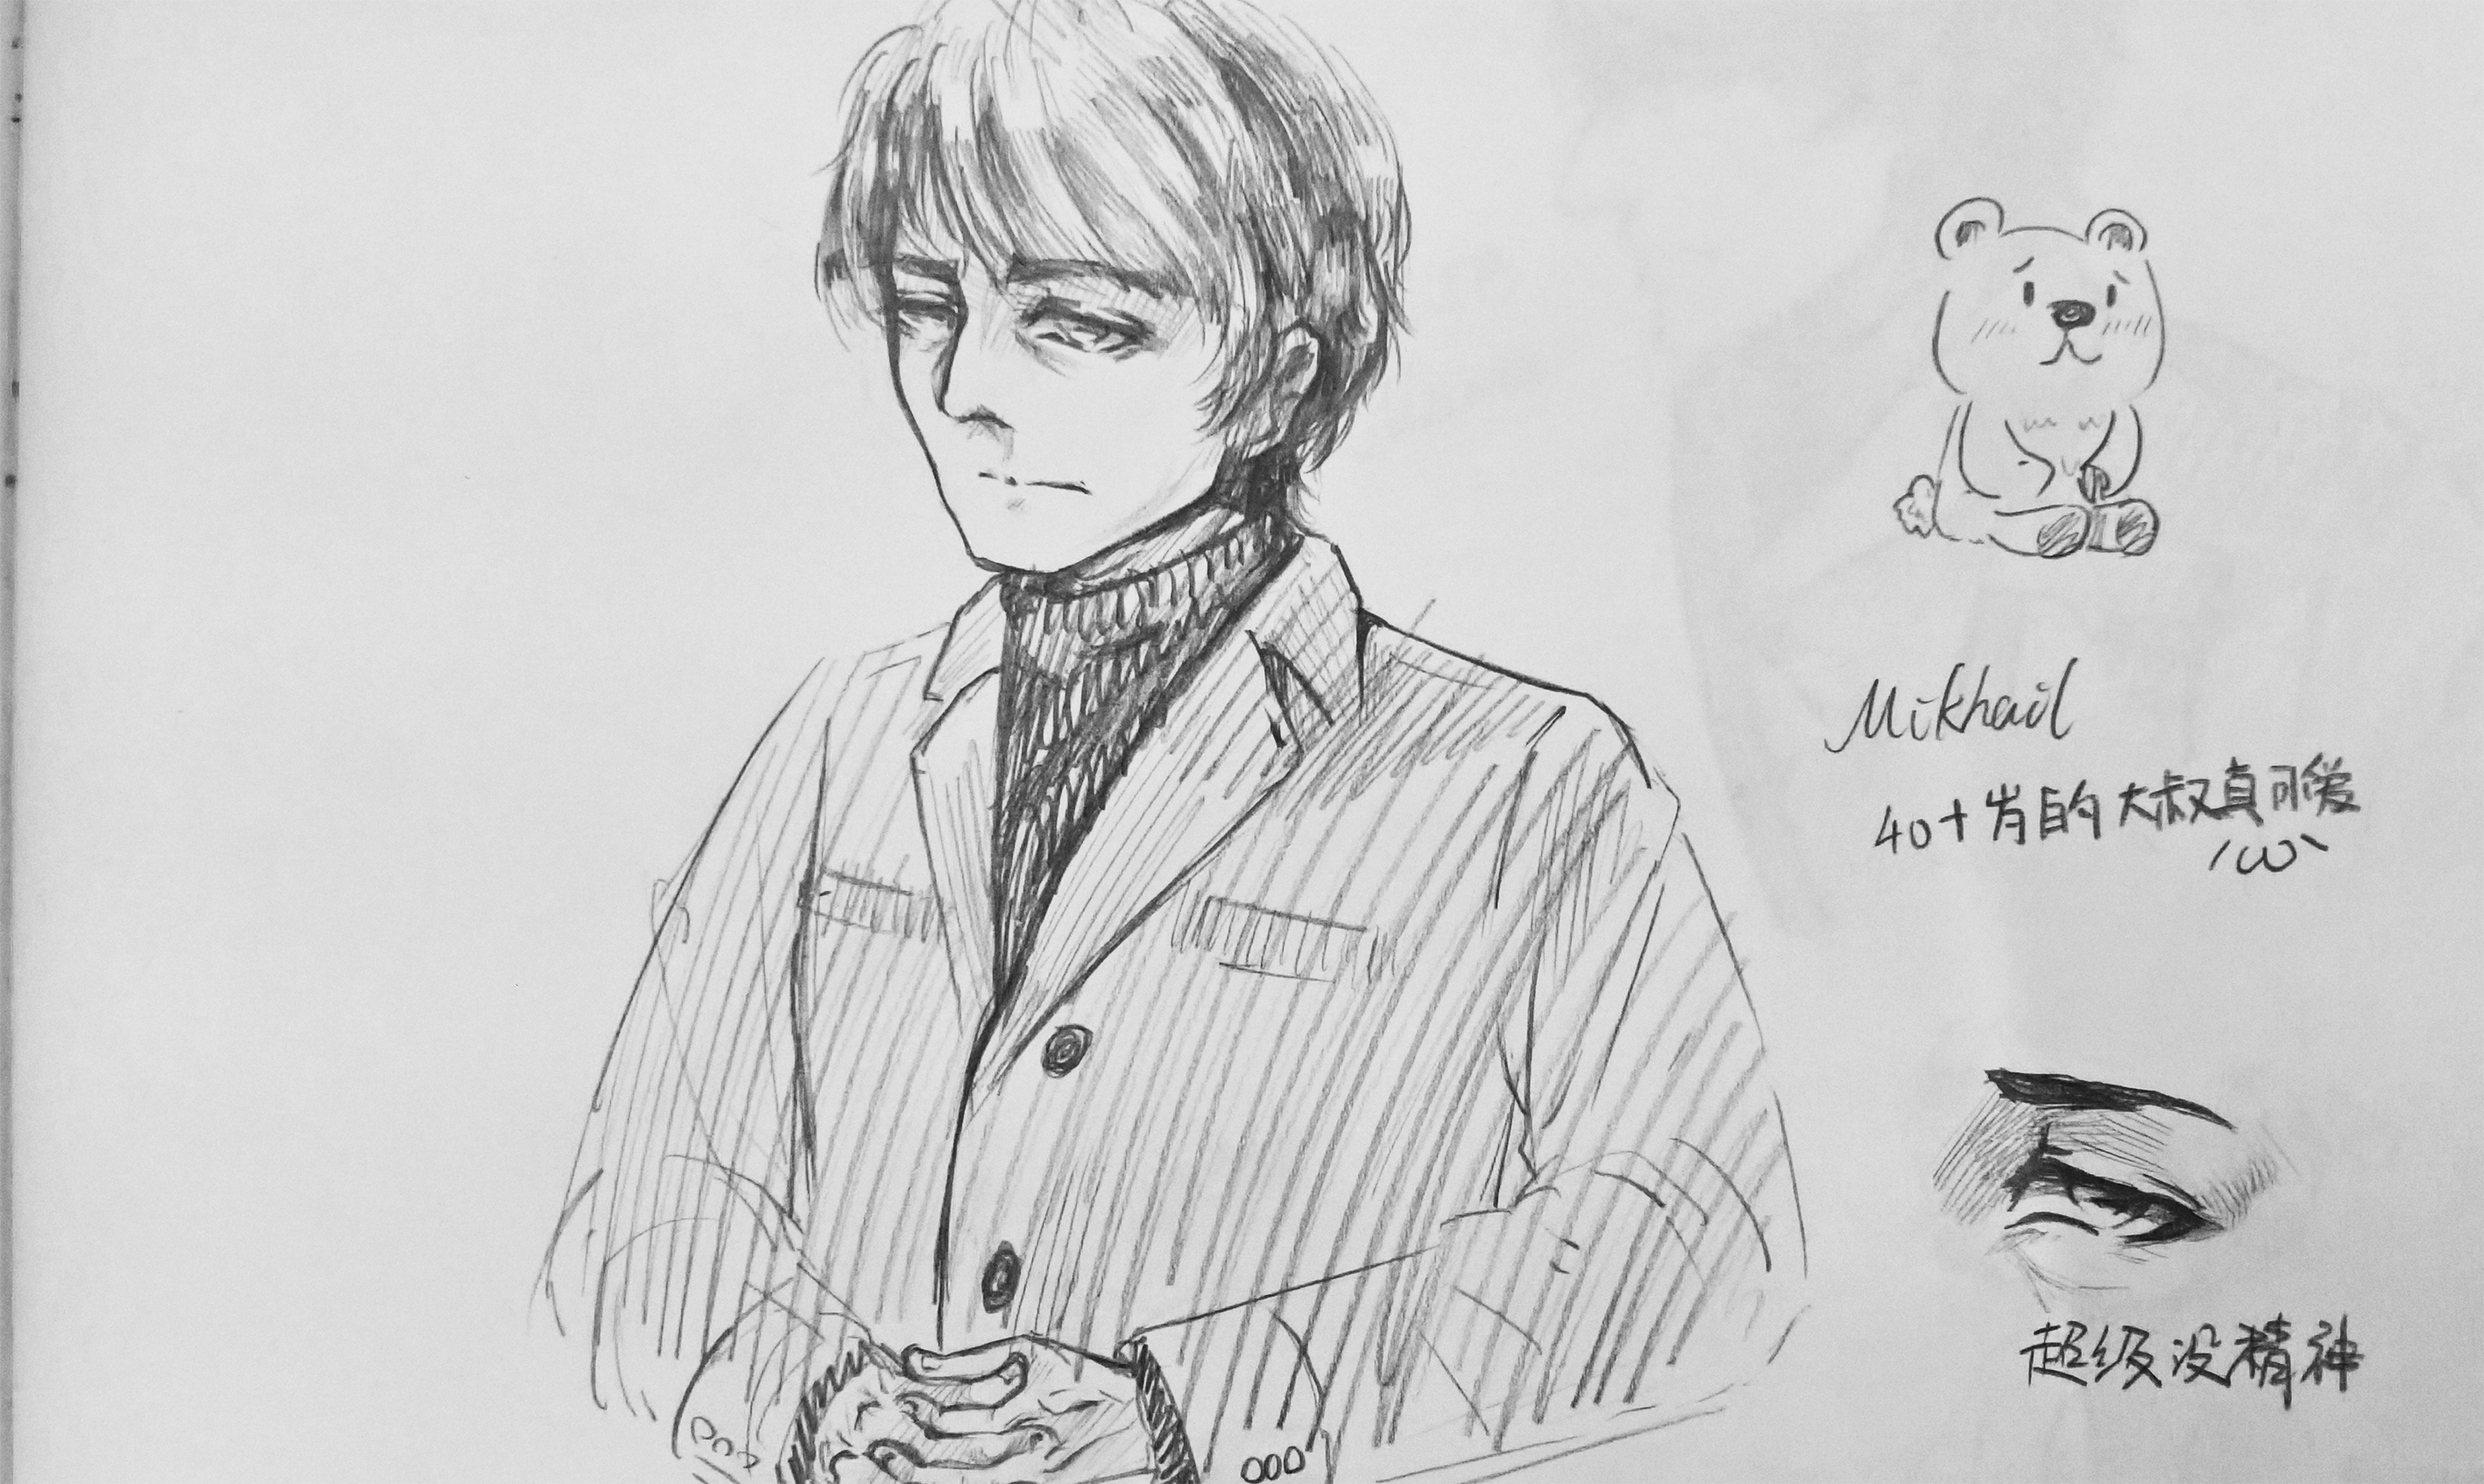 Mikhail
40+岁的大叔真可爱
'ω'
超级没精神